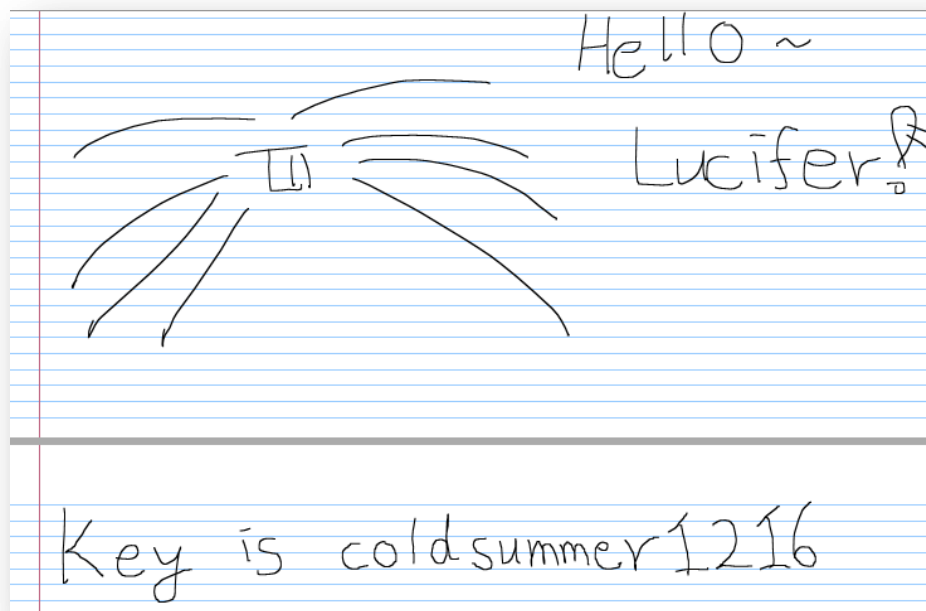 Hello ~
Lucifer!?
Key is coldsummer1216